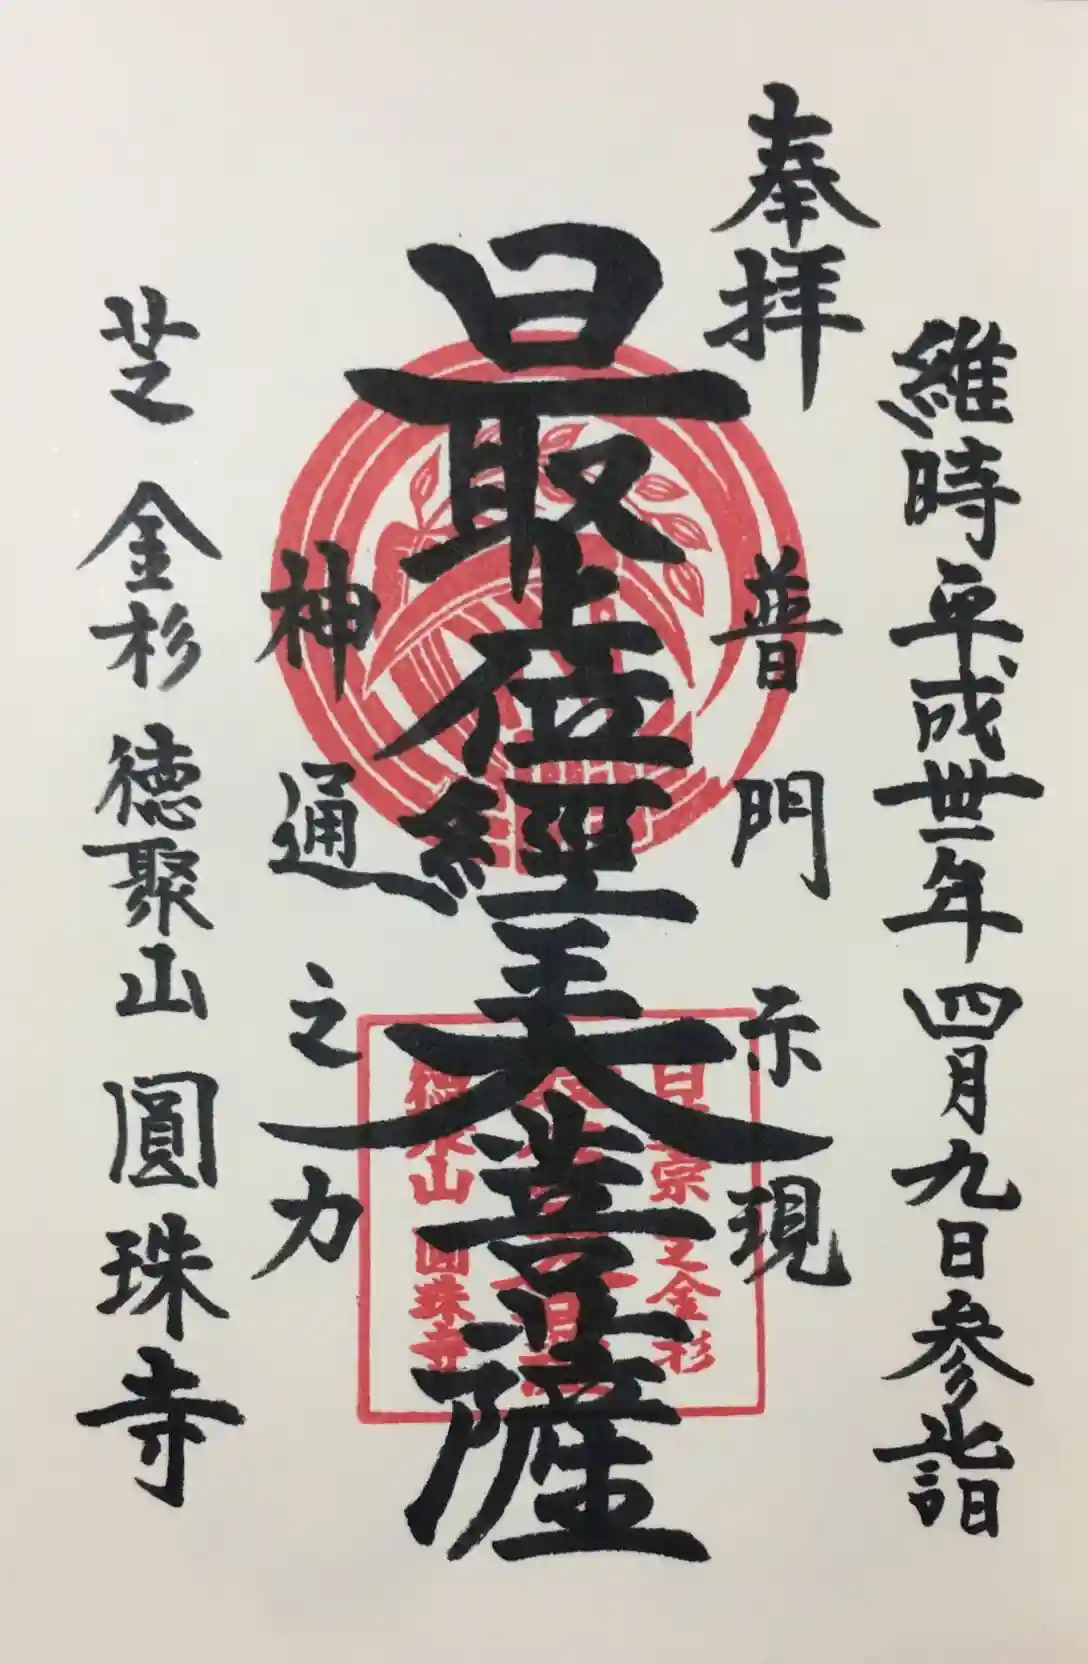 維時平成丗一年四月九日参詣
奉拝
普門示現
最上位經王大菩薩
神通之力
芝 金杉 徳聚山 圓珠寺
日蓮宗 芝金杉
徳聚山 圓珠寺